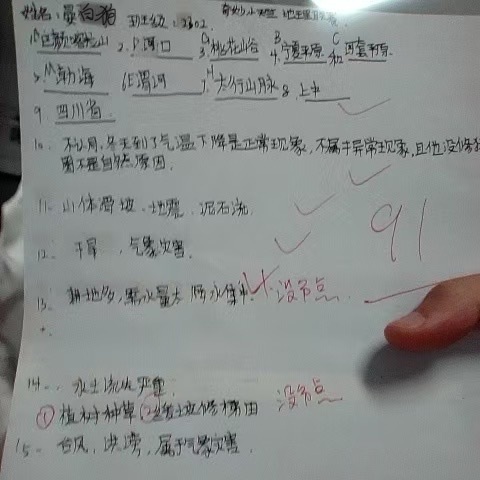 姓名: 班级: 2302
1. 山 2. D 河口 3. 桃花山谷 4. 宁夏平原 和 河套平原
5. 渤海 6. E 渭河 7. H 太行山脉 8. 上中
9. 四川省.
10. 不认同, 冬天到了气温下降是正常现象, 不属于异常现象, 且他没
因不是自然原因.
11. 山体滑坡、地震、泥石流.
12. 干旱 , 气象灾害.
13. 耕地多, 需水量大 降水集中. 没节点.
91
14. 、水土流失严重.
① 植树种草 ② 缓坡修梯田 没节点
15. 台风, 洪涝, 属于气象灾害.